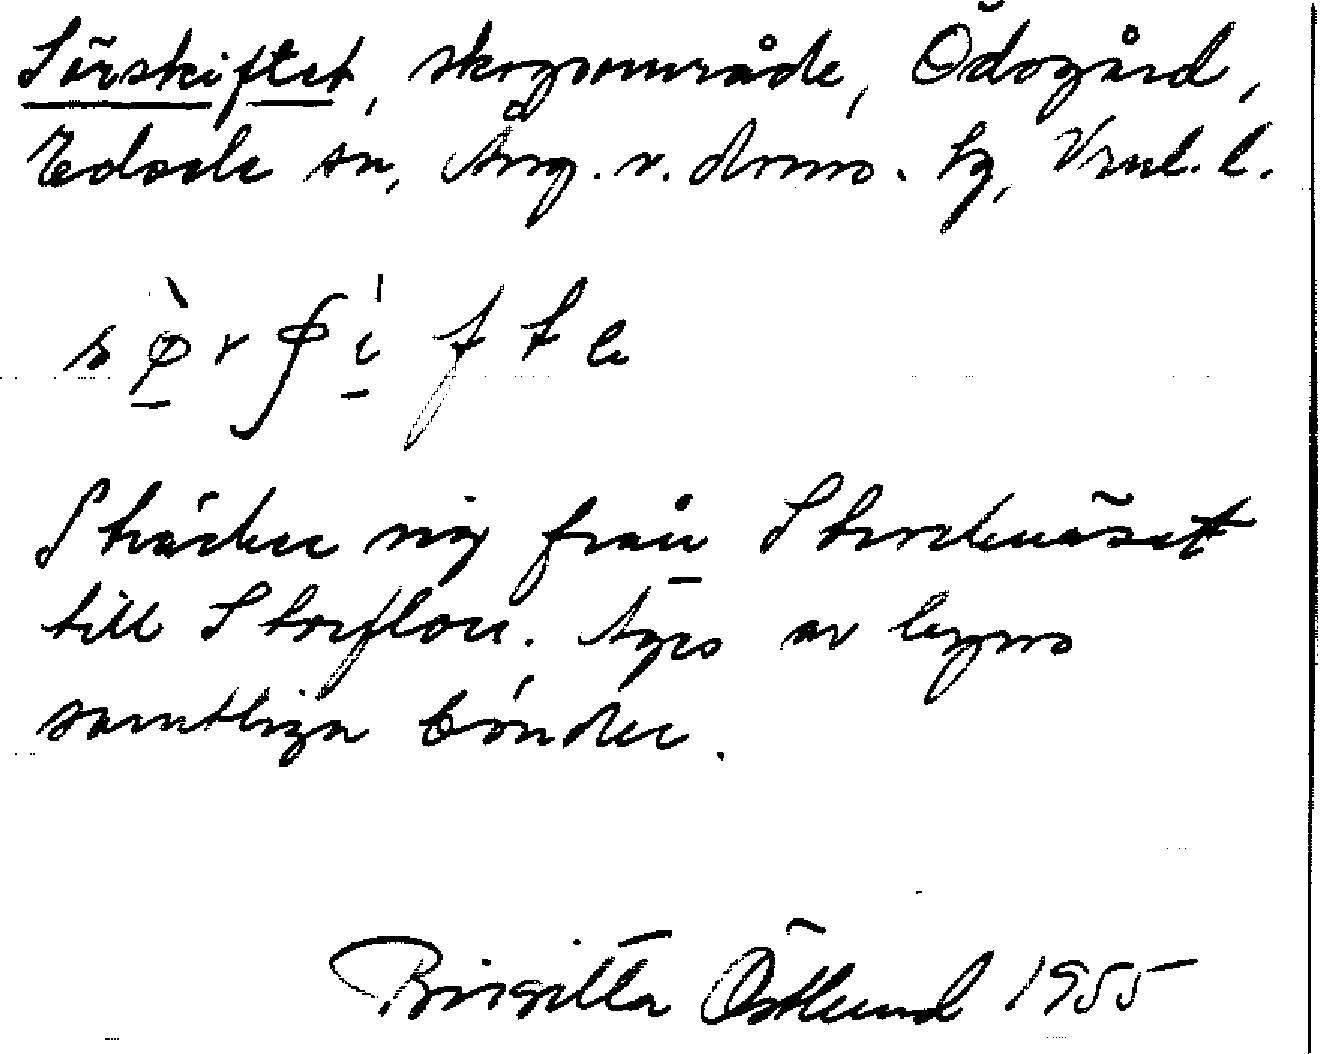 Sörskiftet, skogsområde, Ödsgård,
Edsele sn, Ång. v. doms. tg, Vnl. l.
Sträcker sig från Storbenäset
till Storflon. Äges av byns
samtliga bönder.
Birgitta Östlund 1955